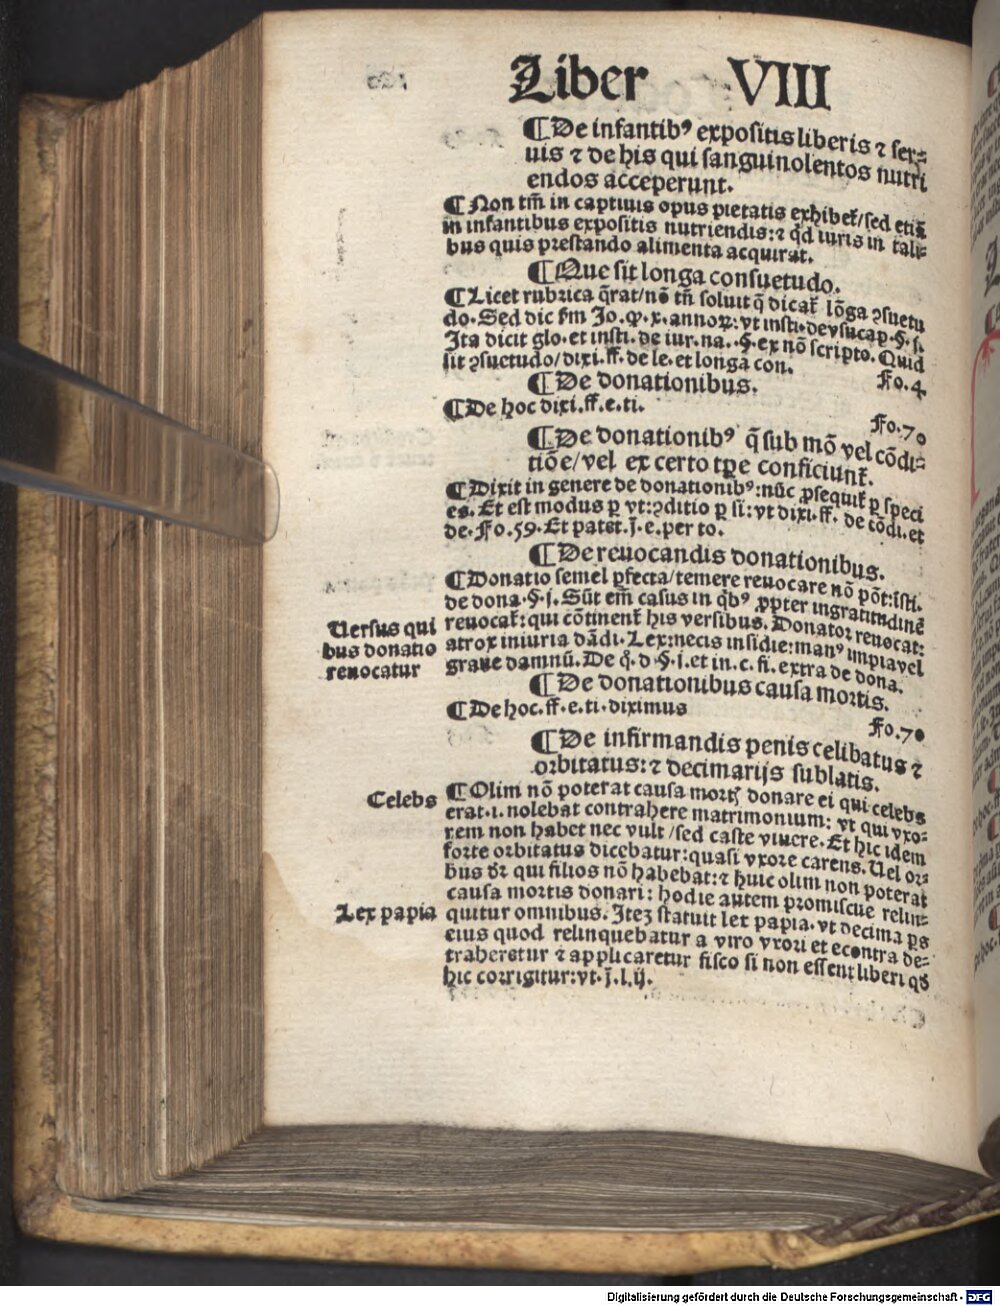 Liber VIII
¶ De infantibꝰ expositis liberis ⁊ ser⸗
uis ⁊ de his qui sanguinolentos nutri
endos acceperunt.
¶ Non tm̄ in captiuis opus pietatis exhibet᷑/sed etiā
in infantibus expositis nutriendis:⁊ qd̄ iuris in tali⸗
bus quis prestando alimenta acquirat.
¶ Que sit longa consuetudo.
¶ Licet rubrica q̄rat/nō tn̄ soluit q̄ dicat᷑ lōga ꝯsuetu
do. Sed dic fm Jo. ꝙ.x.annoꝝ: vt insti. de vsucap.§.j.
Ita dicit glo. et insti. de iur. na. .§. ex nō scripto. Quid
sit ꝯsuetudo/dixi.ff. de le. et longa con.
¶ De donationibus. Fo.4
¶ De hoc dixi.ff.e.ti.
Fo.70
¶ De donationibꝰ q̄ sub mō vel cōdi⸗
tiōe/vel ex certo tꝑe conficiunt᷑.
¶ Dixit in genere de donationibꝰ:nūc ꝓsequit᷑ ꝑ speci
es. Et est modus ꝑ vt:ꝯditio ꝑ si: vt dixi.ff. de cōdi. et
de. Fo.59. Et patet.j̄.e.per to.
¶ De reuocandis donationibus.
¶ Donatio semel ꝑfecta/temere reuocare nō pōt:isti.
de dona.§.j. Sūt em̄ casus in qͥbꝰ ꝓpter ingratitudinē
reuocat᷑: qui cōtinent᷑ his versibus. Donatoꝛ reuocat:
atrox iniuria dādi. Lex:necis insidie:manꝰ impiavel
graue damnū. De q̊.d.§.j.et in.c.fi.extra de dona.
Uersus qui
bus donatio
reuocatur
¶ De donationibus causa mortis.
¶ De hoc.ff.e.ti.diximus
Fo.70
¶ De infirmandis penis celibatus ⁊
orbitatus:⁊ decimarijs sublatis.
Celebs
¶ Olim nō poterat causa mortꝭ donare ei qui celebs
erat.i. nolebat contrahere matrimonium: vt qui vxo⸗
rem non habet nec vult/sed caste viuere. Et hic idem
forte orbitatus dicebatur:quasi vxore carens. Uel or⸗
bus dr̄ qui filios nō habebat:⁊ huic olim non poterat
causa mortis donari: hodie autem promiscue relin⸗
quitur omnibus. Iteꝫ statuit lex papia. vt decima ꝑs
eius quod relinquebatur a viro vxori et econtra de⸗
traheretur ⁊ applicaretur fisco si non essent liberi qḋ
hic corrigitur:vt.j̄.l.ij.
Lex papia
Digitalisierung gefördert durch die Deutsche Forschungsgemeinschaft - DFG